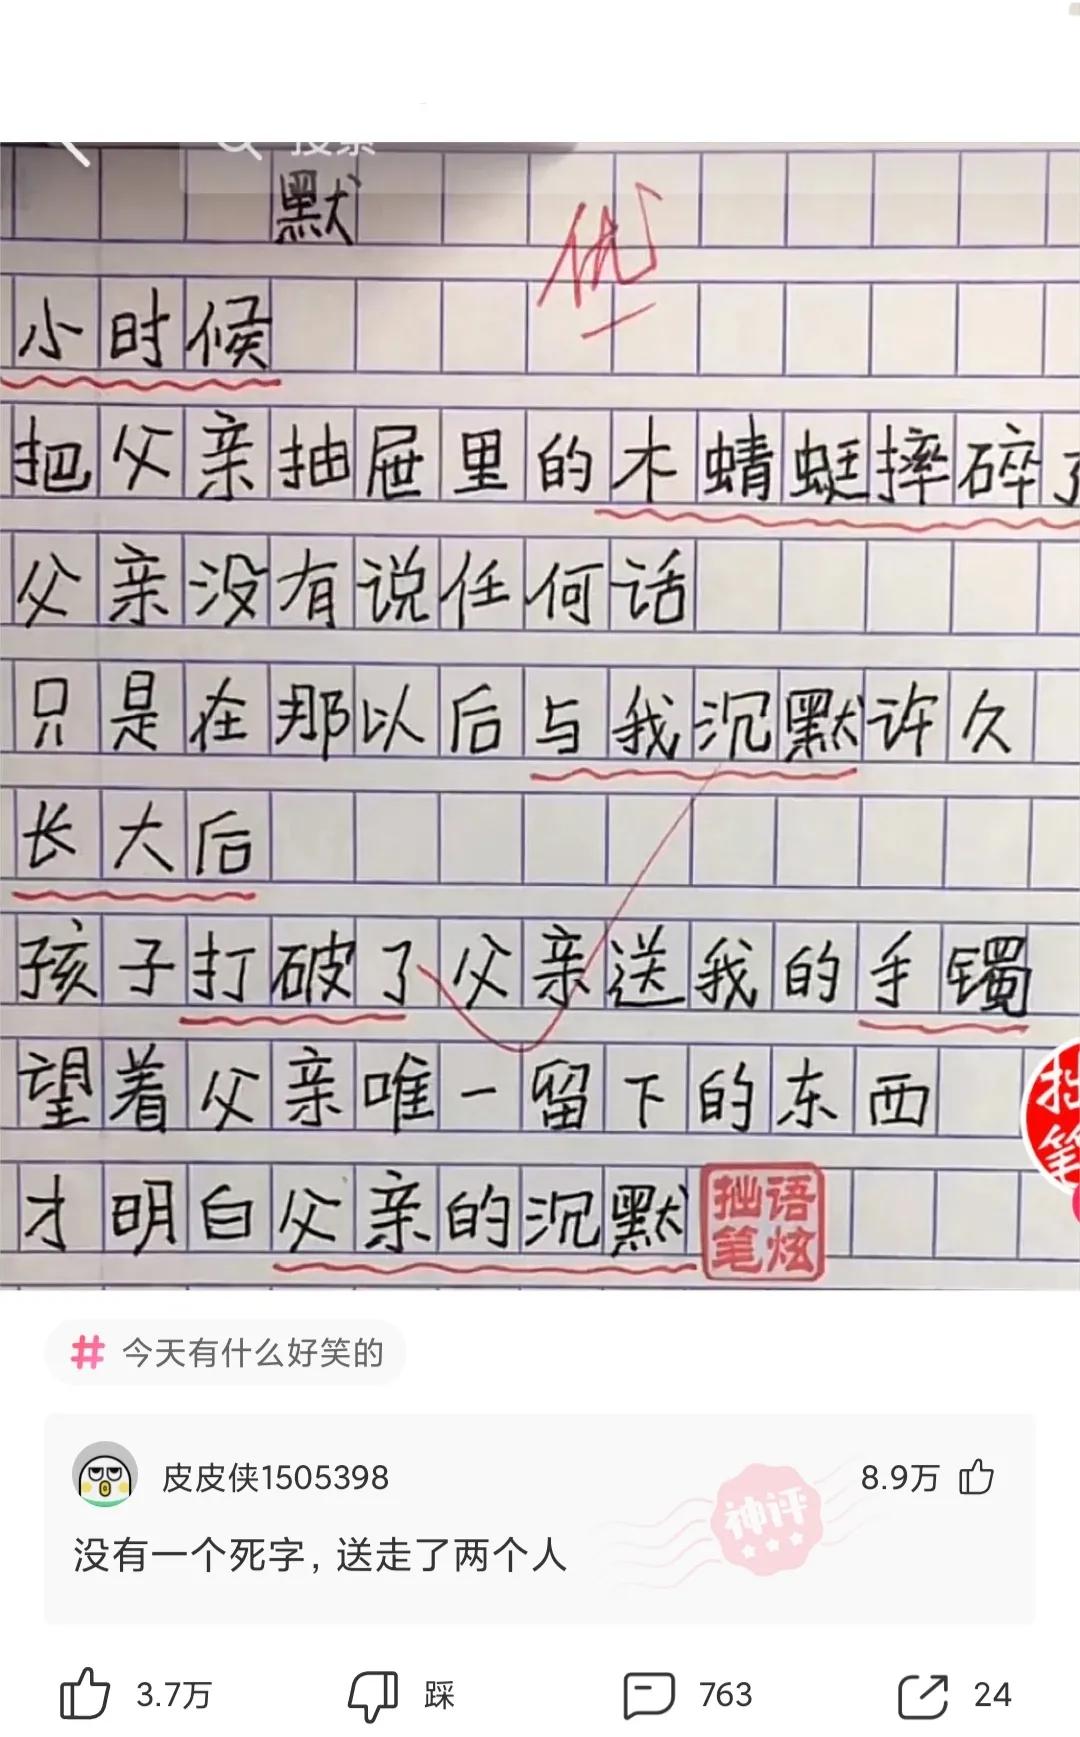 搜索
默
优
小时候
把父亲抽屉里的木蜻蜓摔碎了
父亲没有说任何话
只是在那以后与我沉默许久
长大后
孩子打破了父亲送我的手镯
望着父亲唯一留下的东西
才明白父亲的沉默
拙笔语炫
拙笔
# 今天有什么好笑的
皮皮侠1505398
8.9万
神评
没有一个死字，送走了两个人
3.7万
踩
763
24